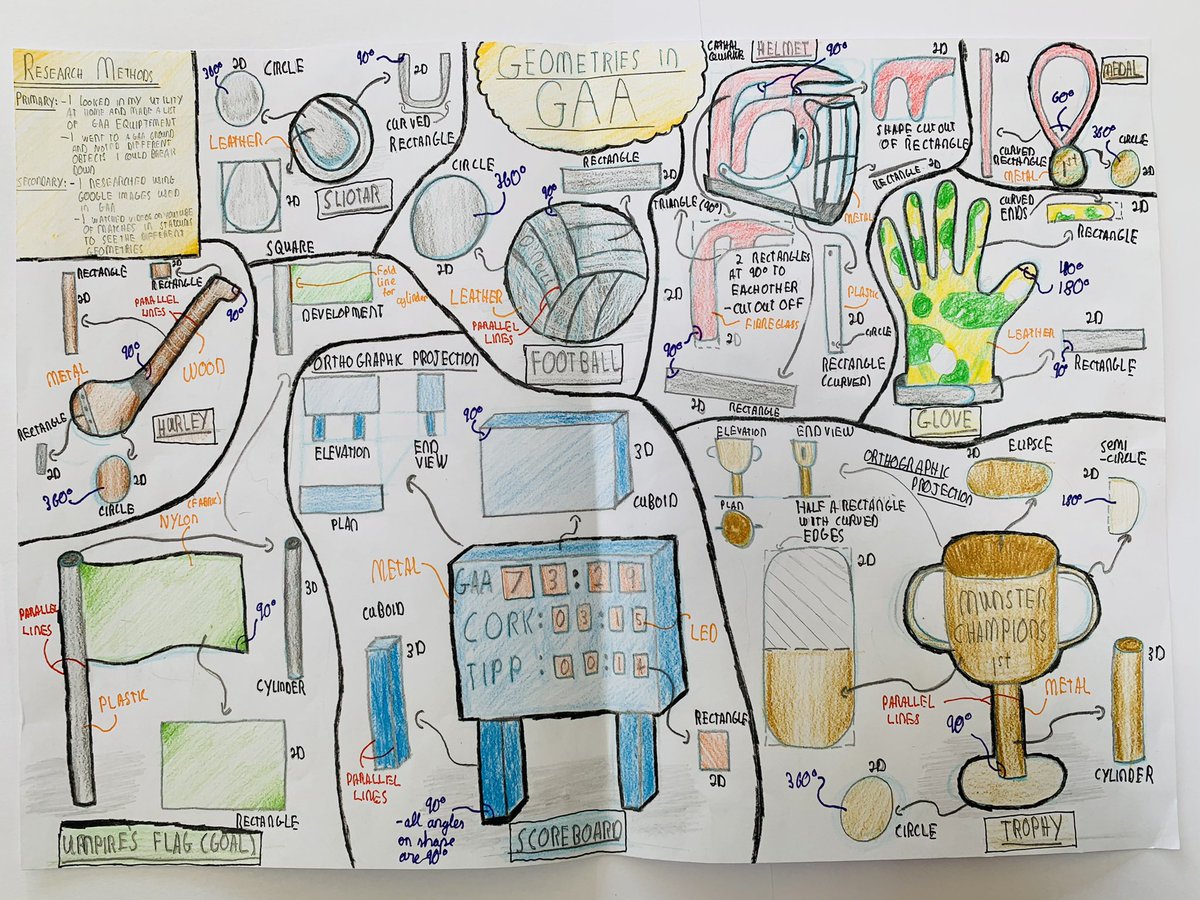 RESEARCH METHODS
PRIMARY: - I LOOKED IN MY UTILITY
AT HOME AND MADE A LIST
OF GAA EQUIPTEMENT
- I WENT TO A GAA GROUND
AND NOTED DIFFERENT
OBJECTS I COULD BREAK
DOWN
SECONDARY: - I RESEARCHED USING
GOOGLE IMAGES USED
IN GAA
- I WATCHED VIDEOS ON YOUTUBE
OF MATCHES IN STADIUMS
TO SEE THE DIFFERENT
GEOMETRIES
360°
2D
CIRCLE
90°
2D
CURVED
RECTANGLE
LEATHER
2D
SLIOTAR
SQUARE
GEOMETRIES IN
GAA
CIRCLE
360°
2D
RECTANGLE
2D
90°
LEATHER
PARALLEL
LINES
FOOTBALL
HELMET
90°
2D
SHAPE CUT OUT
OF RECTANGLE
RECTANGLE
2D
METAL
TRIANGLE (90°)
2 RECTANGLES
AT 90° TO
EACHOTHER
- CUT OUT OFF
FIBREGLASS
2D
2D
90°
2D
RECTANGLE
PLASTIC
2D
CIRCLE
RECTANGLE
(CURVED)
MEDAL
2D
60°
CURVED
RECTANGLE
METAL
1ST
360°
CIRCLE
2D
CURVED
ENDS
2D
RECTANGLE
180°
LEATHER
2D
90°
RECTANGLE
GLOVE
RECTANGLE
2D
2D
RECTANGLE
PARALLEL
LINES
90°
90°
METAL
WOOD
RECTANGLE
2D
HURLEY
360°
2D
CIRCLE
Fold
line
for
cylinder
DEVELOPMENT
NYLON
(FABRIC)
PARALLEL
LINES
90°
3D
PLASTIC
CYLINDER
2D
RECTANGLE
UMPIRE'S FLAG (GOAL)
ORTHOGRAPHIC PROJECTION
ELEVATION
END
VIEW
PLAN
90°
3D
CUBOID
METAL
GAA 73:29
CORK: 03:15
TIPP: 00:14
LED
CUBOID
3D
PARALLEL
LINES
90°
- all angles
on shape
are 90°
RECTANGLE
2D
SCOREBOARD
ELEVATION
END VIEW
PLAN
ORTHOGRAPHIC
PROJECTION
HALF A RECTANGLE
WITH CURVED
EDGES
2D
ELIPSCE
2D
SEMI
-CIRCLE
2D
180°
MUNSTER
CHAMPIONS
1ST
PARALLEL
LINES
METAL
90°
3D
CYLINDER
360°
2D
CIRCLE
TROPHY